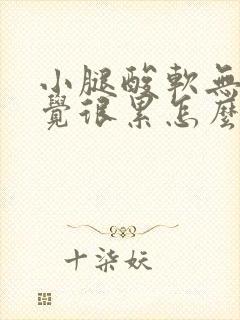 小腿酸軟無
覺很累怎麼
十柒妖